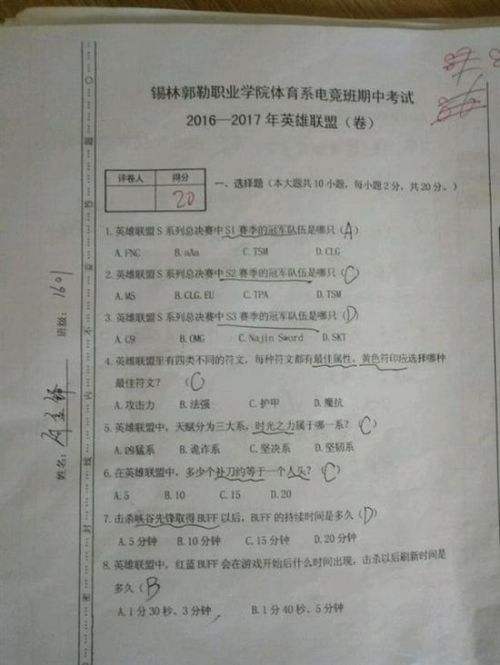 锡林郭勒职业学院体育系电竞班期中考试
2016—2017年英雄联盟（卷）
评卷人 得分
20
一、选择题（本大题共10小题，每小题2分，共20分。）
1.英雄联盟S系列总决赛中S1赛季的冠军队伍是哪只（A）
A.FNC B.aAa C.TSM D.CLG
2.英雄联盟S系列总决赛中S2赛季的冠军队伍是哪只（C）
A.MS B.CLG.EU C.TPA D.TSM
3.英雄联盟S系列总决赛中S3赛季的冠军队伍是哪只（D）
A.C9 B.OMG C.Najin Sword D.SKT
4.英雄联盟里有四类不同的符文，每种符文都有最佳属性，黄色符印应选择哪种
最佳符文？ （C）
A.攻击力 B.法强 C.护甲 D.魔抗
5.英雄联盟中，天赋分为三大系，时光之力属于哪一系？（C）
A.凶猛系 B.诡诈系 C.坚决系 D.坚韧系
6.在英雄联盟中，多少个补刀约等于一个人头？（C）
A.5 B.10 C.15 D.20
7.击杀峡谷先锋取得BUFF以后，BUFF的持续时间是多久（D）
A.5分钟 B.10分钟 C.15分钟 D.20分钟
8.英雄联盟中，红蓝BUFF会在游戏开始后什么时间出现，击杀以后刷新时间是
多久（B
A.1分30秒、3分钟 B.1分40秒、5分钟
班级：1601
姓名：
线
封
密